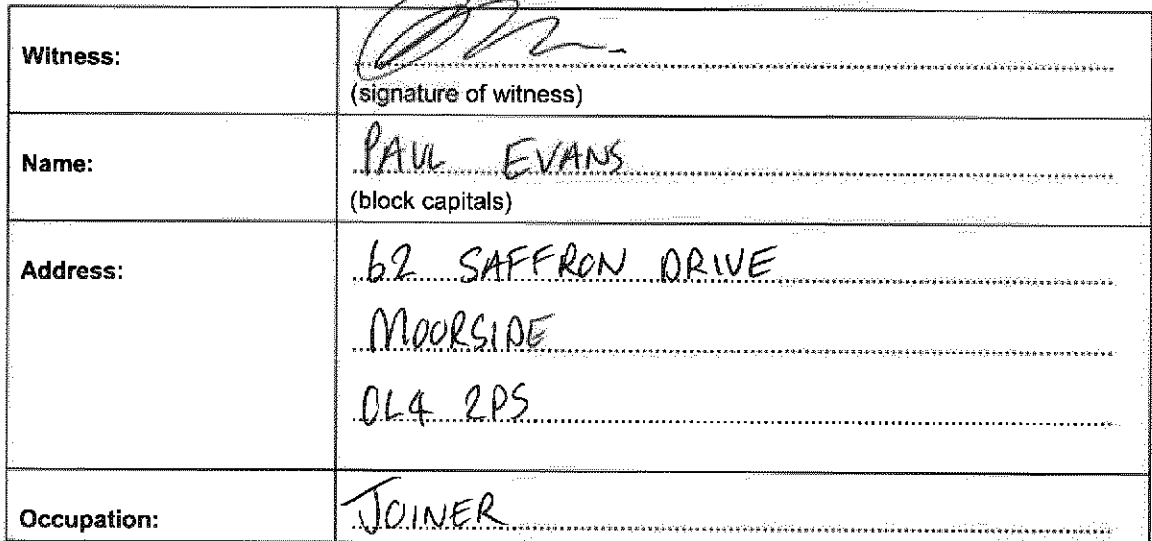 Witness:
(signature of witness)
Name: PAUL EVANS
(block capitals)
Address: 62 SAFFRON DRIVE
MOORSIDE
OL4 2PS
Occupation: JOINER